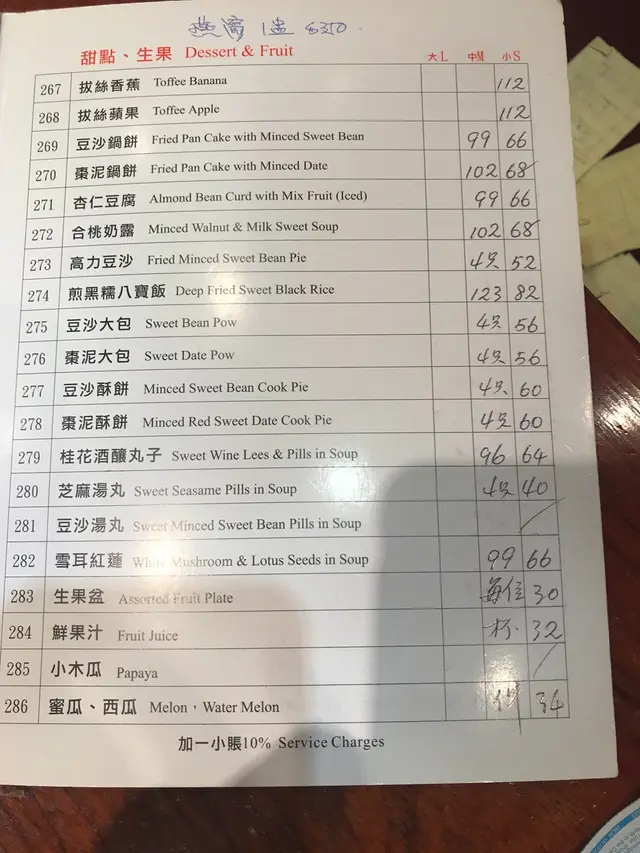 1 $350.
甜點、生果 Dessert & Fruit 大L 中M 小S
267 拔絲香蕉 Toffee Banana 112
268 拔絲蘋果 Toffee Apple 112
269 豆沙鍋餅 Fried Pan Cake with Minced Sweet Bean 99 66
270 棗泥鍋餅 Fried Pan Cake with Minced Date 102 68
271 杏仁豆腐 Almond Bean Curd with Mix Fruit (Iced) 99 66
272 合桃奶露 Minced Walnut & Milk Sweet Soup 102 68
273 高力豆沙 Fried Minced Sweet Bean Pie 4只 52
274 煎黑糯八寶飯 Deep Fried Sweet Black Rice 123 82
275 豆沙大包 Sweet Bean Pow 4只 56
276 棗泥大包 Sweet Date Pow 4只 56
277 豆沙酥餅 Minced Sweet Bean Cook Pie 4只 60
278 棗泥酥餅 Minced Red Sweet Date Cook Pie 4只 60
279 桂花酒釀丸子 Sweet Wine Lees & Pills in Soup 96 64
280 芝麻湯丸 Sweet Seasame Pills in Soup 4只 40
281 豆沙湯丸 Sweet Minced Sweet Bean Pills in Soup
282 雪耳紅蓮 White Mushroom & Lotus Seeds in Soup 99 66
283 生果盆 Assorted Fruit Plate 每位 30
284 鮮果汁 Fruit Juice 杯 32
285 小木瓜 Papaya
286 蜜瓜、西瓜 Melon，Water Melon 34
加一小賬10% Service Charges